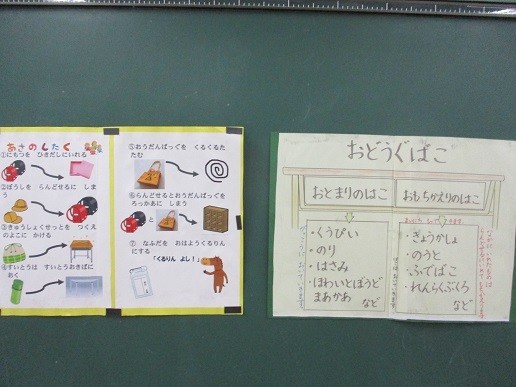 あさのしたく
①にもつを ひきだしにいれる
②ぼうしを らんどせるに しまう
③きゅうしょくせっとを つくえのよこに かける
④すいとうは すいとうおきばに おく
⑤おうだんばっぐを くるくるたたむ
⑥らんどせるとおうだんばっぐを ろっかあに しまう
と
⑦ なふだを おはようくるりんにする
「くるりん よし!」
おどうぐばこ
おとまりのはこ
おもちかえりのはこ
・くうぴい
・のり
・はさみ
・ほわいとぼうどまあかあ
など
・きょうかしょ
・のうと
・ふでばこ
・れんらくぶくろ
など